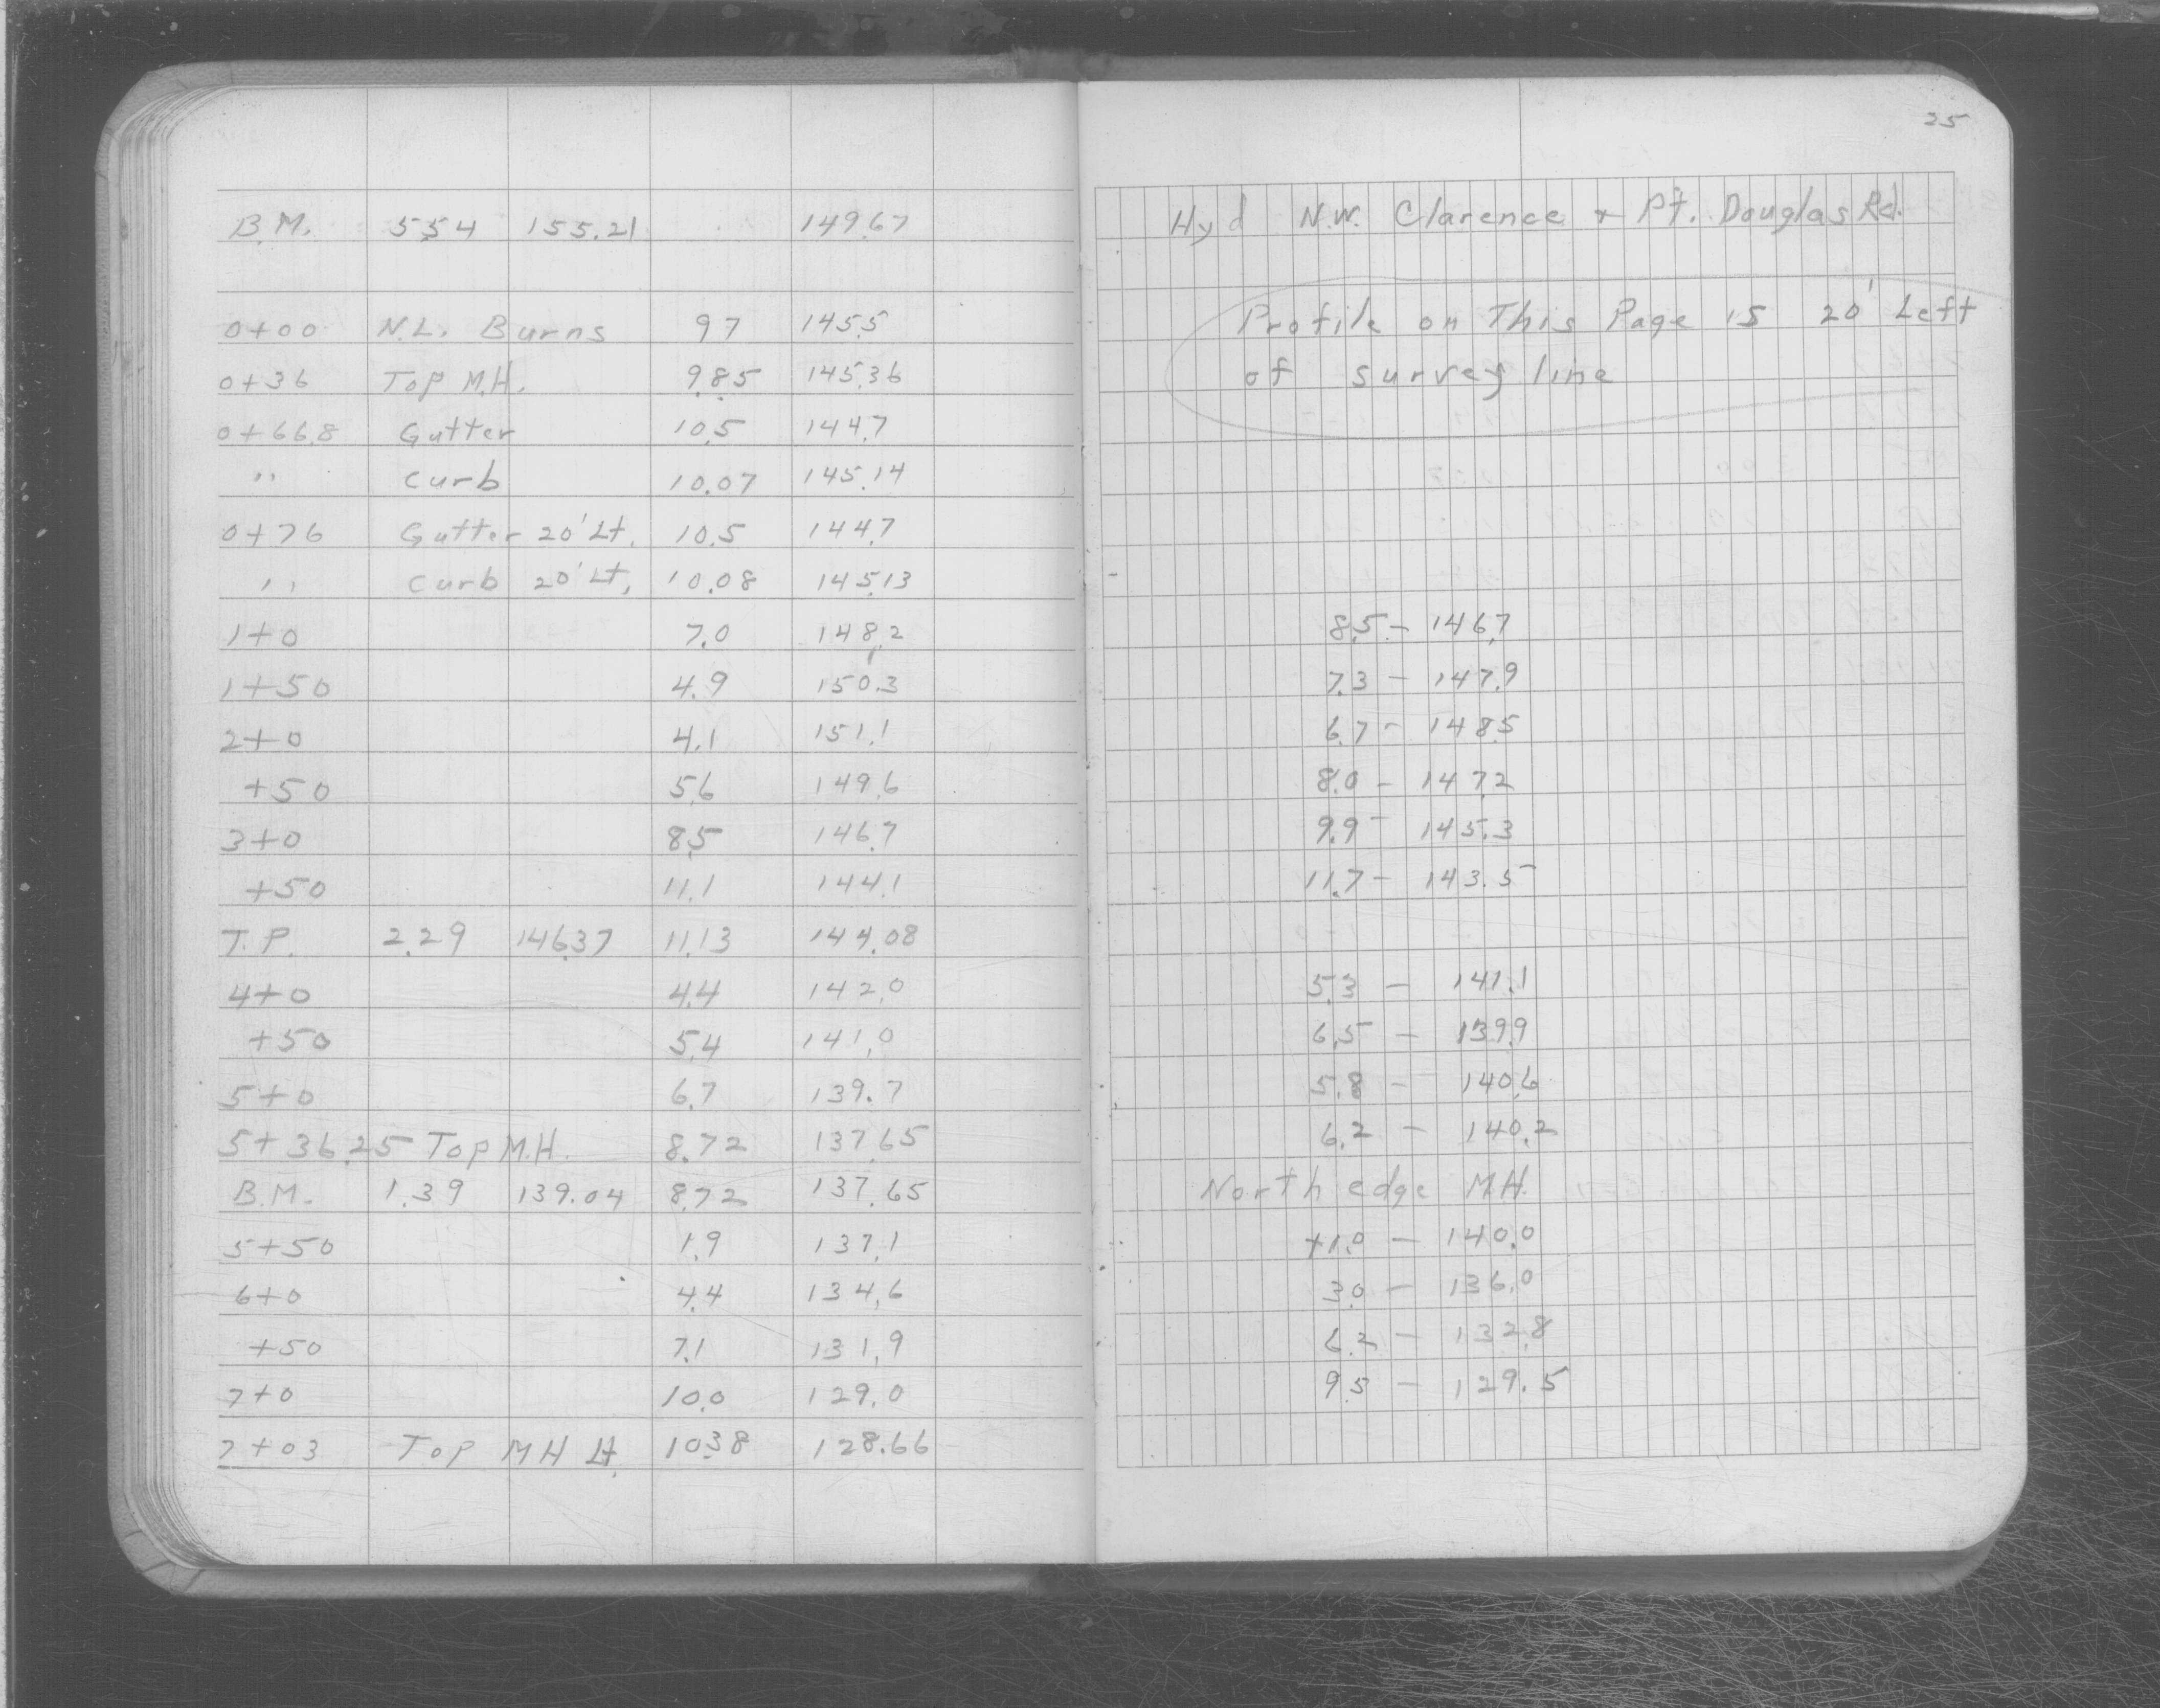 25
B.M. 5.54 155.21 149.67 Hyd N.W. Clarence + Pt. Douglas Rd.
0+00 N.L. Burns 9.7 145.5 Profile on This Page is 20' Left
0+36 Top M.H. 9.85 145.36 of survey line
0+66.8 Gutter 10.5 144.7
" curb 10.07 145.14
0+76 Gutter 20' Lt. 10.5 144.7
" curb 20' Lt. 10.08 145.13
1+0 7.0 148.2 8.5 - 146.7
1+50 4.9 150.3 7.3 - 147.9
2+0 4.1 151.1 6.7 - 148.5
+50 5.6 149.6 8.0 - 147.2
3+0 8.5 146.7 9.9 - 145.3
+50 11.1 144.1 11.7 - 143.5
T.P. 2.29 146.37 11.13 144.08
4+0 4.4 142.0 5.3 - 141.1
+50 5.4 141.0 6.5 - 139.9
5+0 6.7 139.7 5.8 - 140.6
5+36.25 Top M.H. 8.72 137.65 6.2 - 140.2
B.M. 1.39 139.04 8.72 137.65 North edge M.H.
5+50 1.9 137.1 +1.0 - 140.0
6+0 4.4 134.6 3.0 - 136.0
+50 7.1 131.9 6.2 - 132.8
7+0 10.0 129.0 9.5 - 129.5
7+03 Top MH Lt. 10.38 128.66